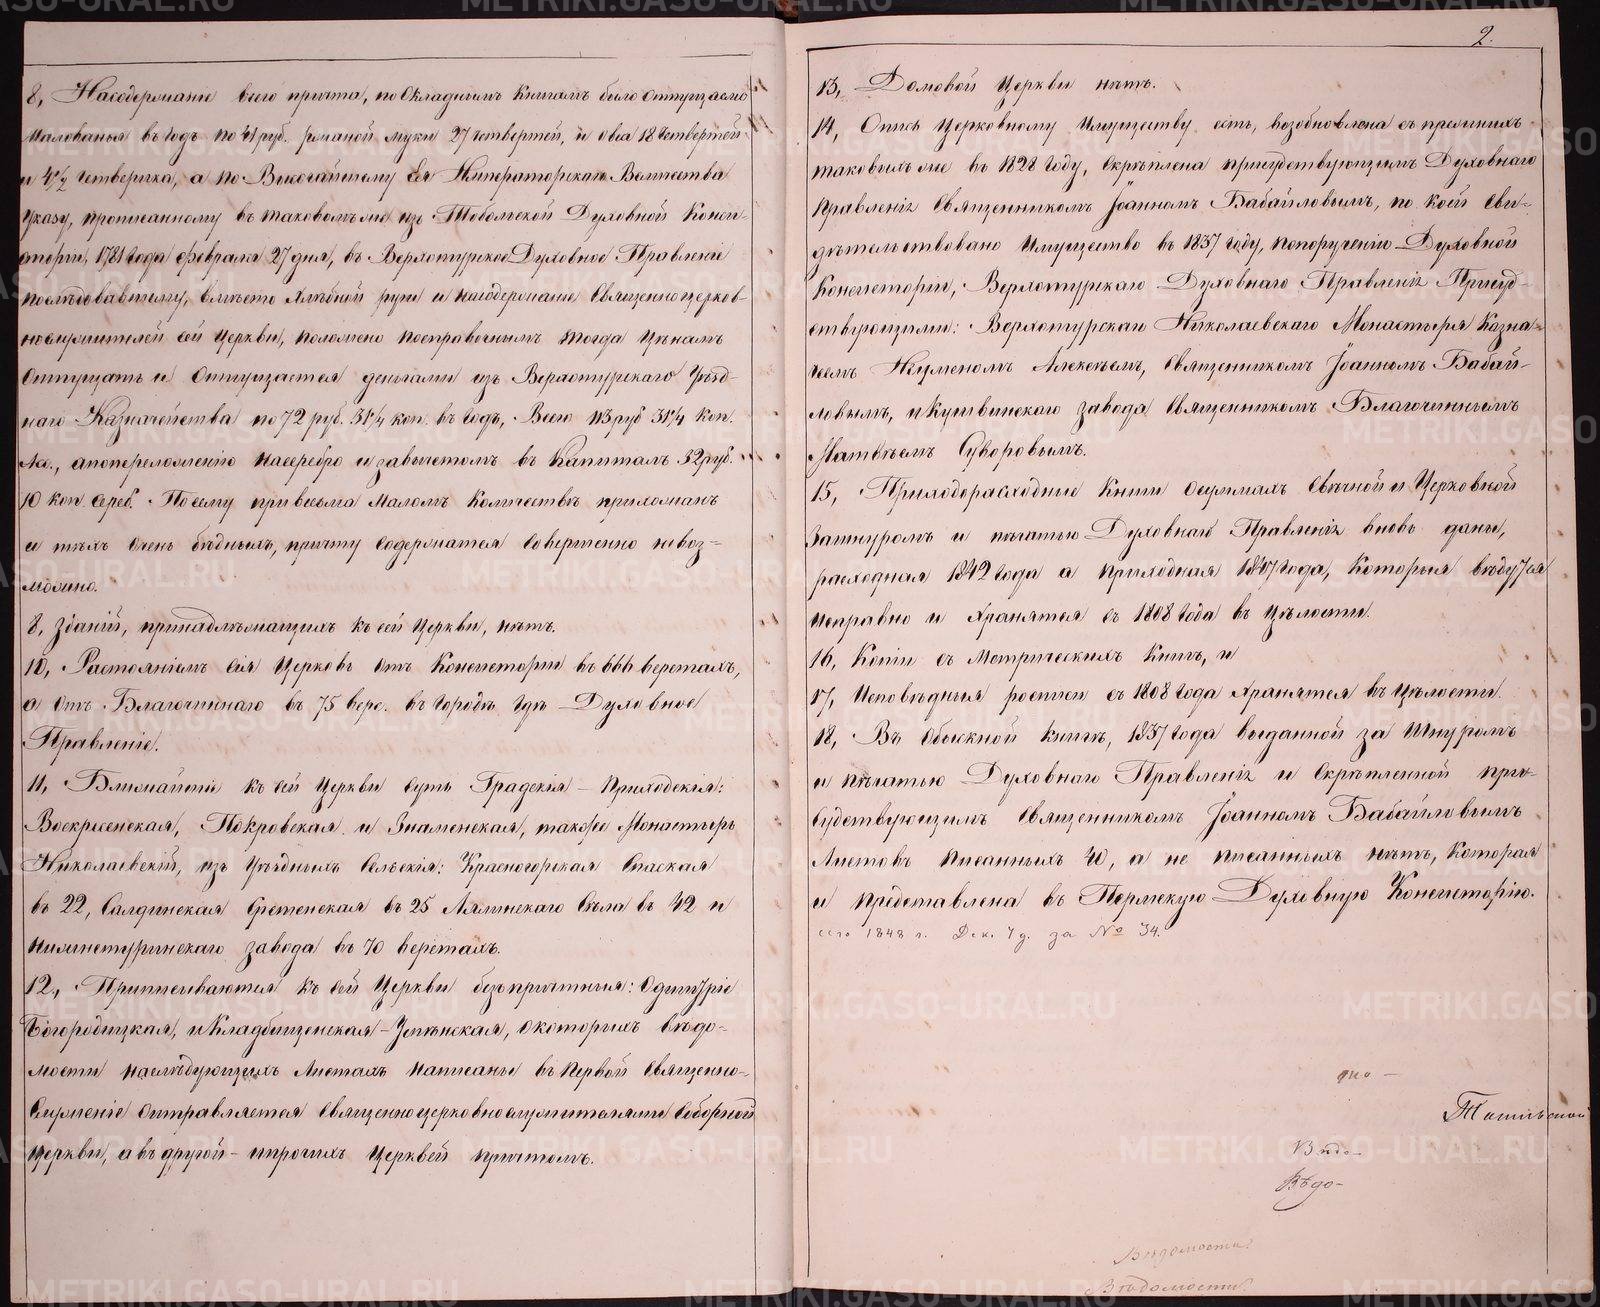 8, На содержаніе всего причта, по Окладнымъ Книгамъ было отпущаемо
Жалованья въ годъ по 41 руб. ржаной муки 27 четвертей, и овса 18 Четвертей
и 4½ четверика, а по Высочайшему Ея Императорскаго Величества
Указу, прописанному въ таковомъ же изъ Тобольской Духовной Конси-
сторіи, 1781 года февраля 27 дня, въ Верхотурское Духовное Правленіе
последовавшему, вмѣсто хлѣбной руги и на содержаніе Священноцерков-
нослужителей сей Церкви, положено по справочнымъ тогда Цѣнамъ
Отпущать и Отпущается деньгами изъ Верхотурскаго Уѣзд-
наго Казначейства по 72 руб. 31¼ коп. въ годъ, Всего 113 руб 31¼ коп.
Ас., а по переложенію на серебро и за вычетомъ въ Капиталъ 32 руб.
10 коп сереб. По сему при весьма маломъ количествѣ прихожанъ
и тѣхъ очень бѣдныхъ, причту содержатся совершенно невоз-
можно.
8, Зданій, принадлѣжащихъ къ сей Церкви, нѣтъ.
10, Растояніемъ сія Церковь отъ Консисторіи въ 666 верстахъ,
а отъ Благочиннаго въ 75 верс. въ Городѣ гдѣ Духовное
Правленіе.
11, Ближайшіе къ сей Церкви суть Градскія – Приходскія:
Воскресенская, Покровская и Знаменская, также Монастырь
Николаевскій, изъ Уѣздныхъ Сельскія: Красногорская Спаская
въ 22, Салдинская Сретенская въ 25 Лялинскаго Села въ 42 и
Нижнетуринскаго завода въ 70 верстахъ.
12, Приписываются къ сей Церкви безпричтныя: Одигитріе
Богородицкая, и Кладбищенская – Успенская, о которыхъ вѣдо-
мости на слѣдующихъ Листахъ написаны въ первой Священно-
Служеніе отправляется Священноцерковнослужителями Соборной
Церкви, а въ другой – и прочихъ Церквей причтомъ.
2.
13, Домовой Церкви нѣтъ.
14, Опись Церковному Имуществу есть, возобновлена съ прежнихъ
таковыхъ же въ 1828 Году, Скрѣплена присудствующимъ Духовнаго
Правленія Священникомъ Іоанномъ Бабайловымъ, по коей Сви-
дѣтельствовано Имущество въ 1837 году, по порученію Духовной
Консисторіи, Верхотурскаго Духовнаго Правленія Присуд-
ствующими: Верхотурскаго Николаевскаго Монастыря Казна-
чеемъ Игуменомъ Алексѣемъ, Священникомъ Іоанномъ Бабай-
ловымъ, и Кушвинскаго завода Священникомъ Благочиннымъ
Матвѣемъ Суворовымъ.
15, Приходорасходные Книги о суммахъ Свѣчной и Церковной
За шнуромъ и печатью Духовнаго Правленія вновь даны,
расходная 1842 года а приходная 1847 года, Которыя ведутся
исправно и хранятся съ 1808 года въ Цѣлости.
16, Копіи съ Метрическихъ Книгъ, и
17, Исповѣдныя росписи съ 1808 года хранятся въ Цѣлости.
18, Въ Обыскной книгѣ, 1837 года выданной за Шнуромъ
и печатью Духовнаго Правленія и Скрѣпленной при-
судствующимъ Священникомъ Іоанномъ Бабайловымъ
Листовъ писанныхъ 40, а не писанныхъ нѣтъ, Которая
и представлена въ Пермскую Духовную Консисторію.
сего 1848 г. Дек. 4 д. за № 34.
Вѣдо-
Вѣдо-
Вѣдомости
Вѣдомости
METRIKI.GASO-URAL.RU